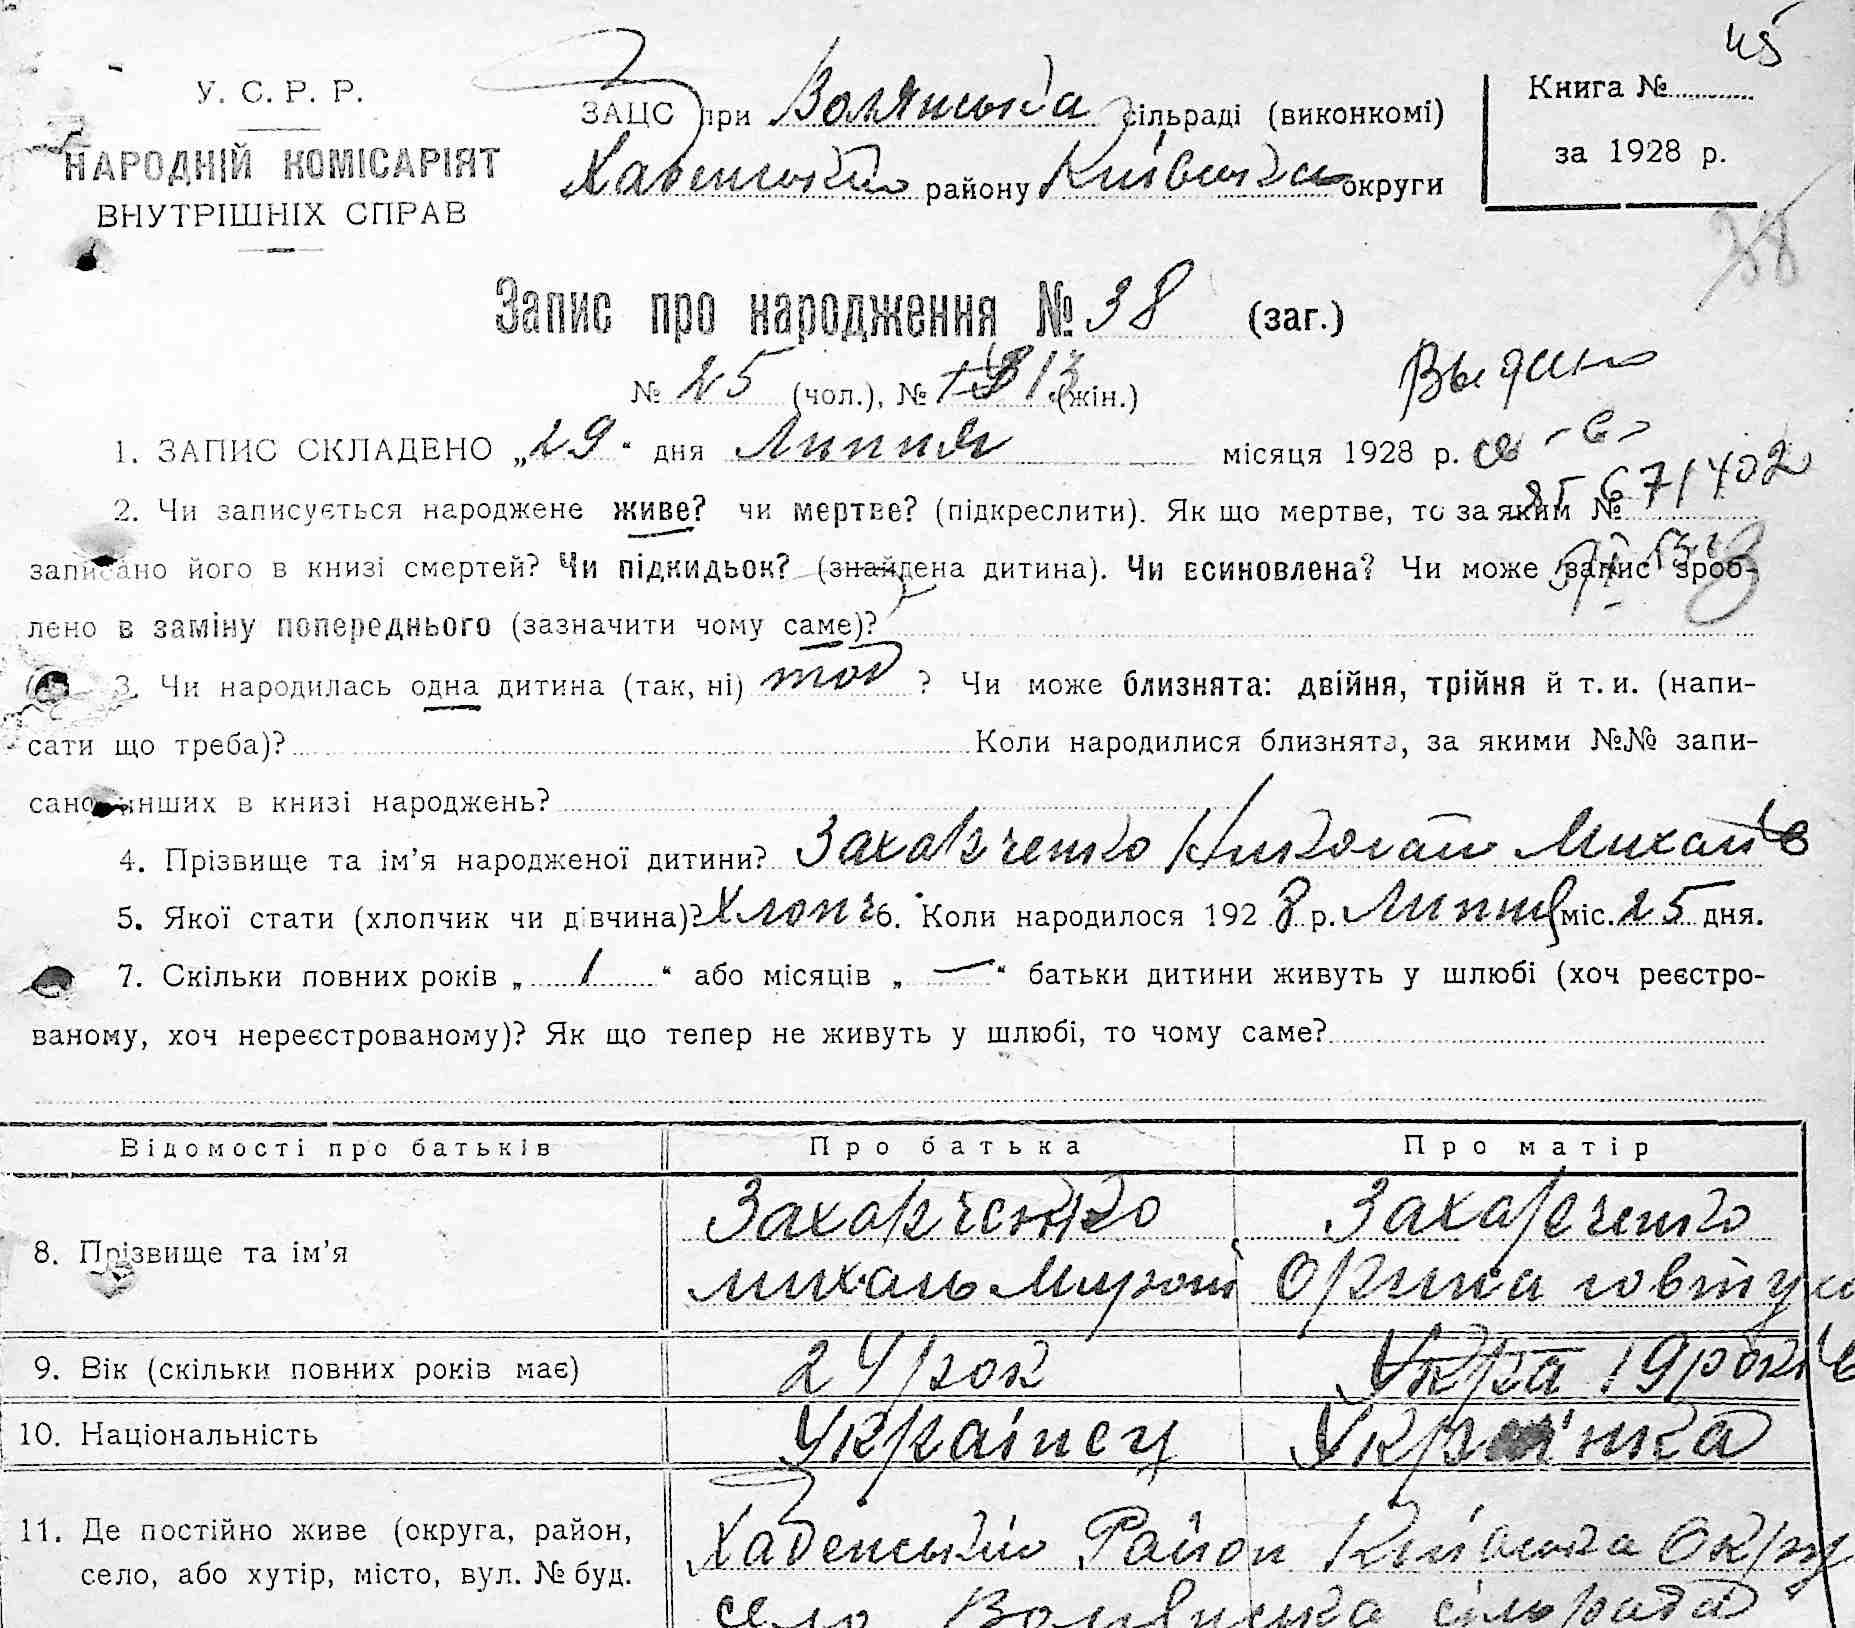 45
У. С. Р. Р.
НАРОДНІЙ КОМІСАРІЯТ
ВНУТРІШНІХ СПРАВ
ЗАЦС при Волянська сільраді (виконкомі)
Хабенський району Київська округи
Книга №
за 1928 р.
38
Запис про народження № 38 (заг.)
№ 25 (чол.), № 13 (жін.)
1. ЗАПИС СКЛАДЕНО „29“ дня Липня місяця 1928 р.
671402
2. Чи записується народжене живе? чи мертве? (підкреслити). Як що мертве, то за яким №
записано його в книзі смертей? Чи підкидьок? (знайдена дитина). Чи всиновлена? Чи може запис зроб-
лено в заміну попереднього (зазначити чому саме)?
3. Чи народилась одна дитина (так, ні) ? Чи може близнята: двійня, трійня й т. и. (напи-
сати що треба)? Коли народилися близнята, за якими №№ запи-
сано инших в книзі народжень?
4. Прізвище та ім’я народженої дитини? Захарченко Николай Михайлів
5. Якої стати (хлопчик чи дівчина)? Хлопч 6. Коли народилося 1928 р. Липня міс. 25 дня.
7. Скільки повних років „ 1 “ або місяців „ — “ батьки дитини живуть у шлюбі (хоч реєстро-
ваному, хоч нереєстрованому)? Як що тепер не живуть у шлюбі, то чому саме?
Відомості про батьків Про батька Про матір
8. Прізвище та ім’я
Захарченко Захарченко
Михаль Орина
9. Вік (скільки повних років має) 24 рок Укра 19 років
10. Національність Українец Українка
11. Де постійно живе (округа, район,
село, або хутір, місто, вул. № буд.
Хабенський Район Київська Окру
село Волянська сільрада